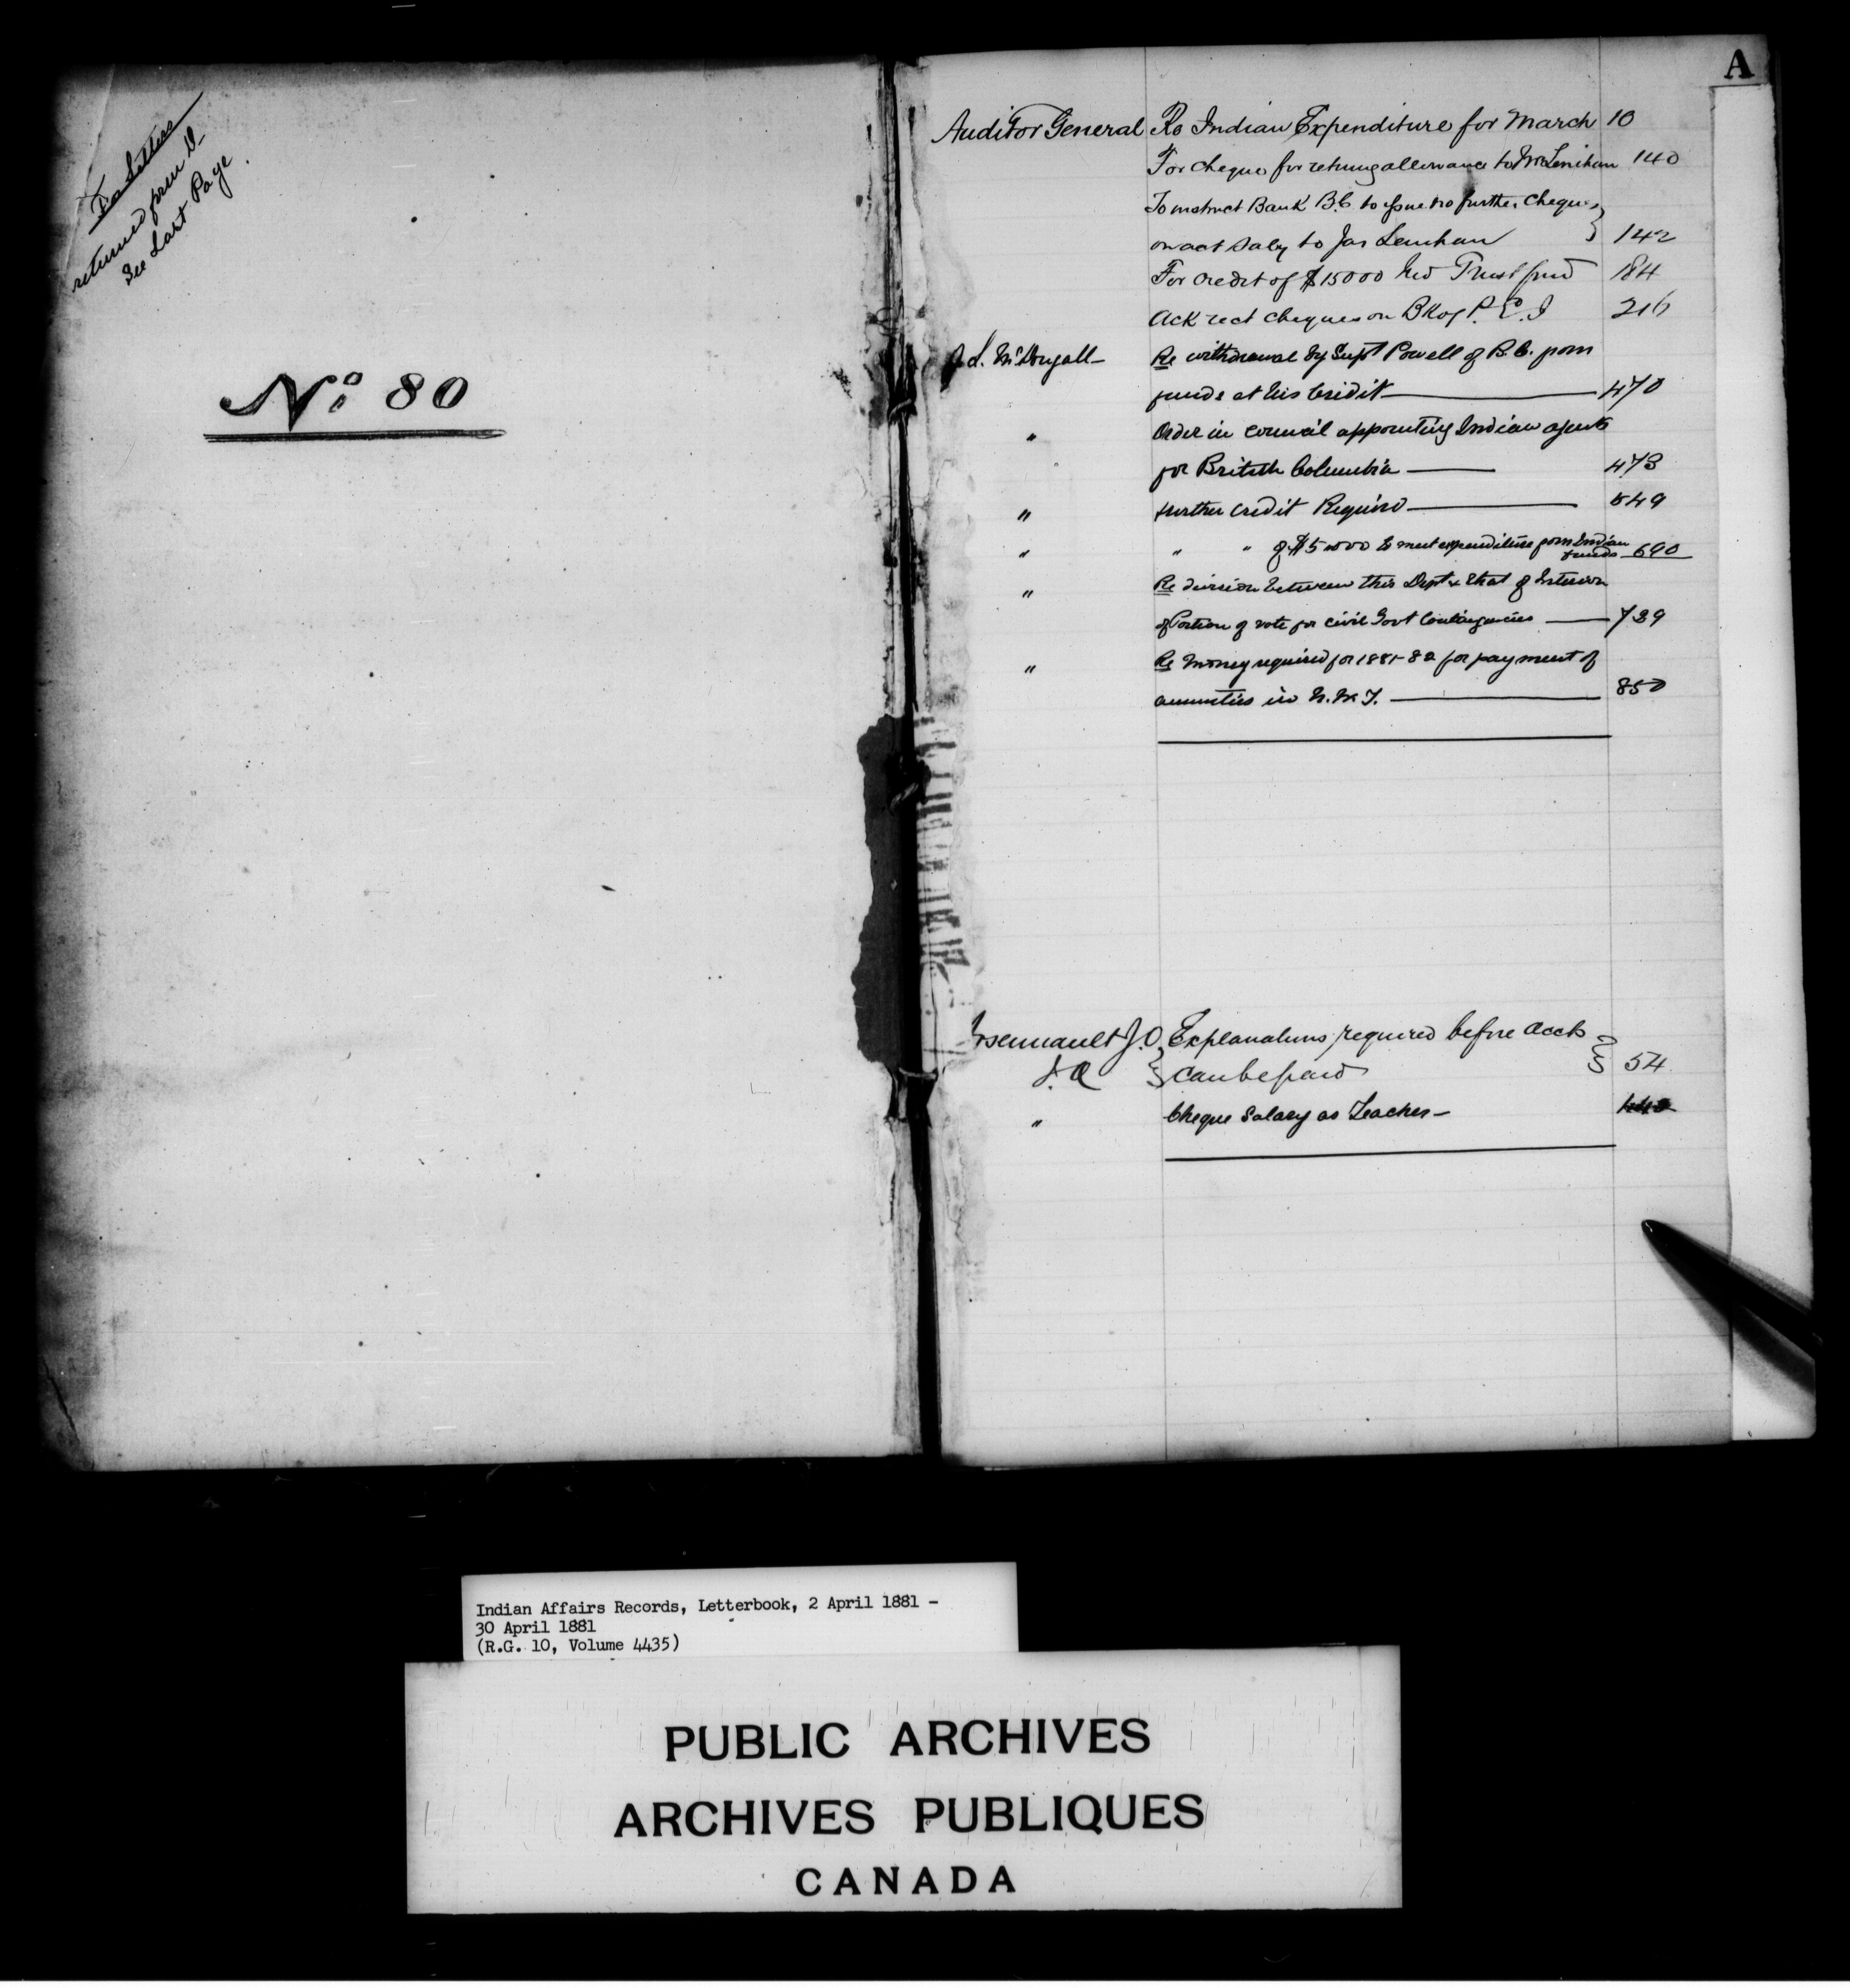 For Letters
returned from D-
See Last Page.
No. 80
A
Auditor General Re Indian Expenditure for March 10
For cheque for retiring allowance to Mr Lenihan 140
To instruct Bank B.C. to issue no further cheques
on acct Saly to Jas Lenihan 142
For credit of $15000 Trust fund 184
Ack rect cheques on Bk of P. E. I 216
J. L. McDougall - Re withdrawal by Supt Powell of B.C. from
funds at his Credit 470
" Order in council appointing Indian agents
for British Columbia 473
" Further credit Required 549
" " " of $5 to meet expenditure from Indian funds 690
" Re division between this Dept & that of Interior
of Portion of vote for Civil Govt Contingencies 739
" Re Money required for 1881-82 for payment of
annuities in N.W.T. 850
Arsennault J.O. Explanations required before accts
can be paid 54
" Cheque Salary as Teacher -
Indian Affairs Records, Letterbook, 2 April 1881 -
30 April 1881
(R.G. 10, Volume 4435)
PUBLIC ARCHIVES
ARCHIVES PUBLIQUES
CANADA